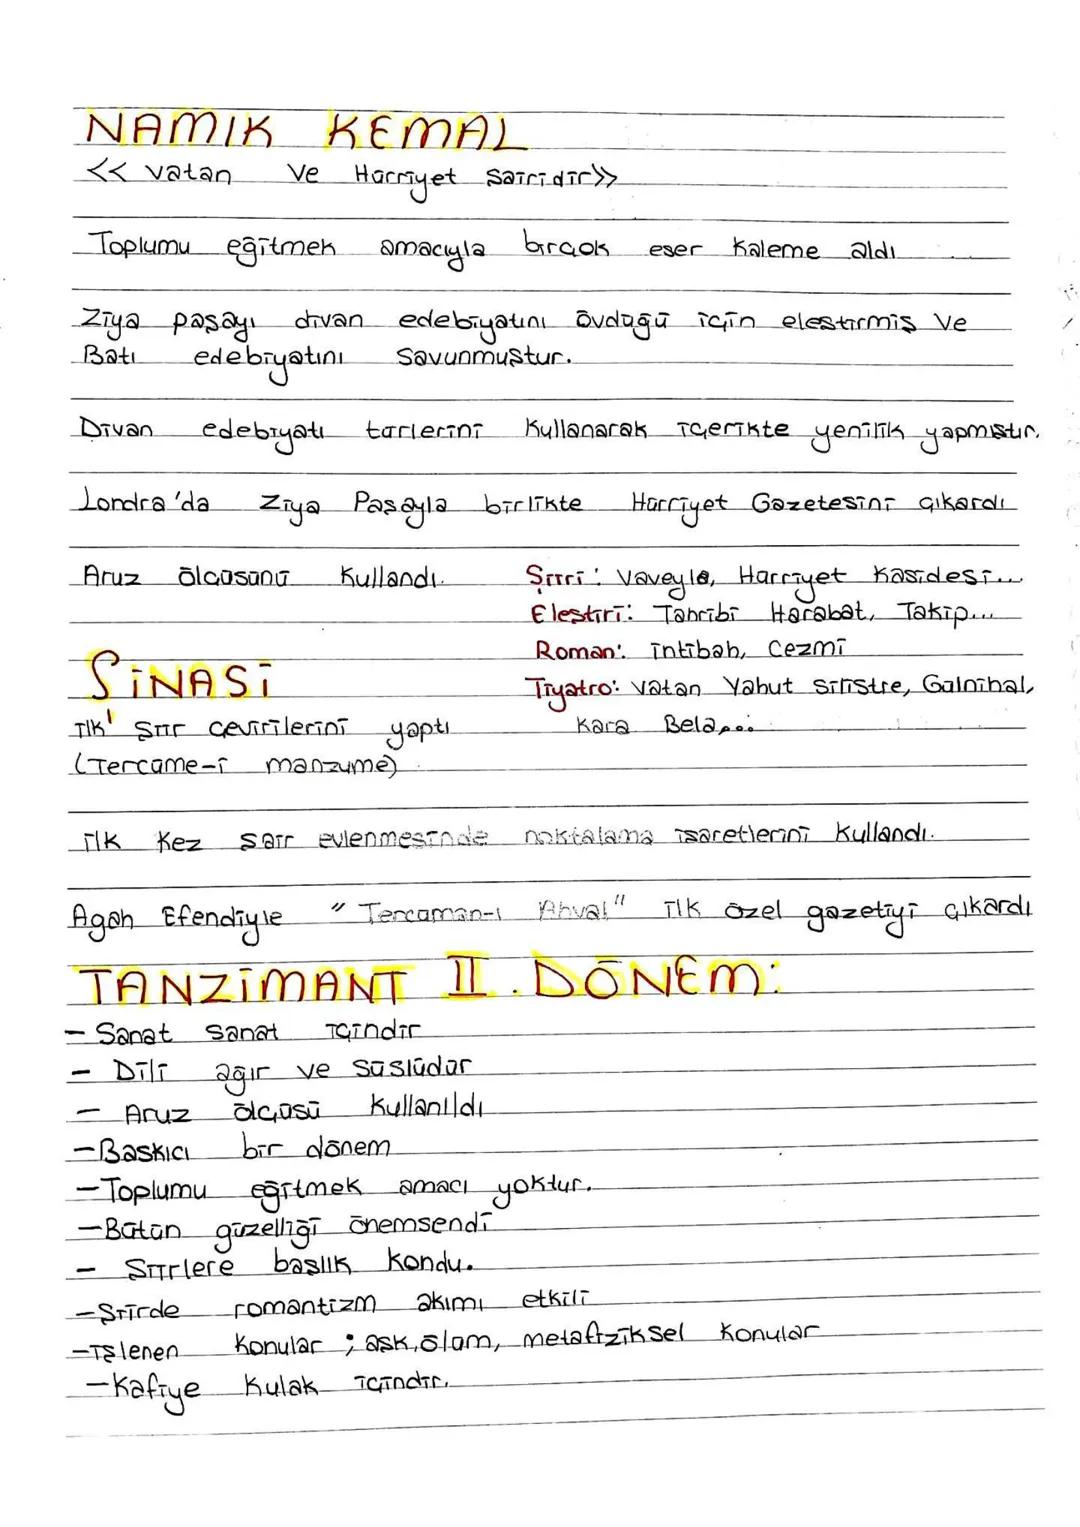 NAMIK KEMAL
<< Vatan Ve Hürriyet Şairidir>>
Toplumu eğitmek amacıyla birçok eser kaleme aldı
Ziya paşayı divan edebiyatını övdüğü için eleştirmiş ve
Batı edebiyatını Savunmuştur.
Divan edebiyatı türlerini Kullanarak içerikte yenilik yapmıştır.
Londra'da Ziya Paşayla birlikte Hürriyet Gazetesini çıkardı
Aruz ölçüsünü Kullandı.
Şiiri: Vaveyla, Hürriyet Kasidesi...
Eleştiri: Tahribi Harabat, Takip...
Roman: intibah, Cezmi
Tiyatro: Vatan Yahut Silistre, Gülnihal,
Kara Bela...
ŞİNASİ
ilk şiir çevirilerini yaptı
(Tercüme-i manzume)
ilk Kez şair evlenmesinde noktalama işaretlerini Kullandı.
Agah Efendiyle "Tercüman-ı Ahval" ilk özel gazetiyi çıkardı
TANZİMANT II. DÖNEM:
- Sanat sanat içindir
- Dili ağır ve süslüdür
- Aruz ölçüsü kullanıldı
- Baskıcı bir dönem
- Toplumu eğitmek amacı yoktur.
- Bütün güzelliği önemsendi
- Şiirlere başlık Kondu.
- Şiirde romantizm akımı etkili
- işlenen Konular ; aşk, ölüm, metafiziksel Konular
- Kafiye Kulak içindir.